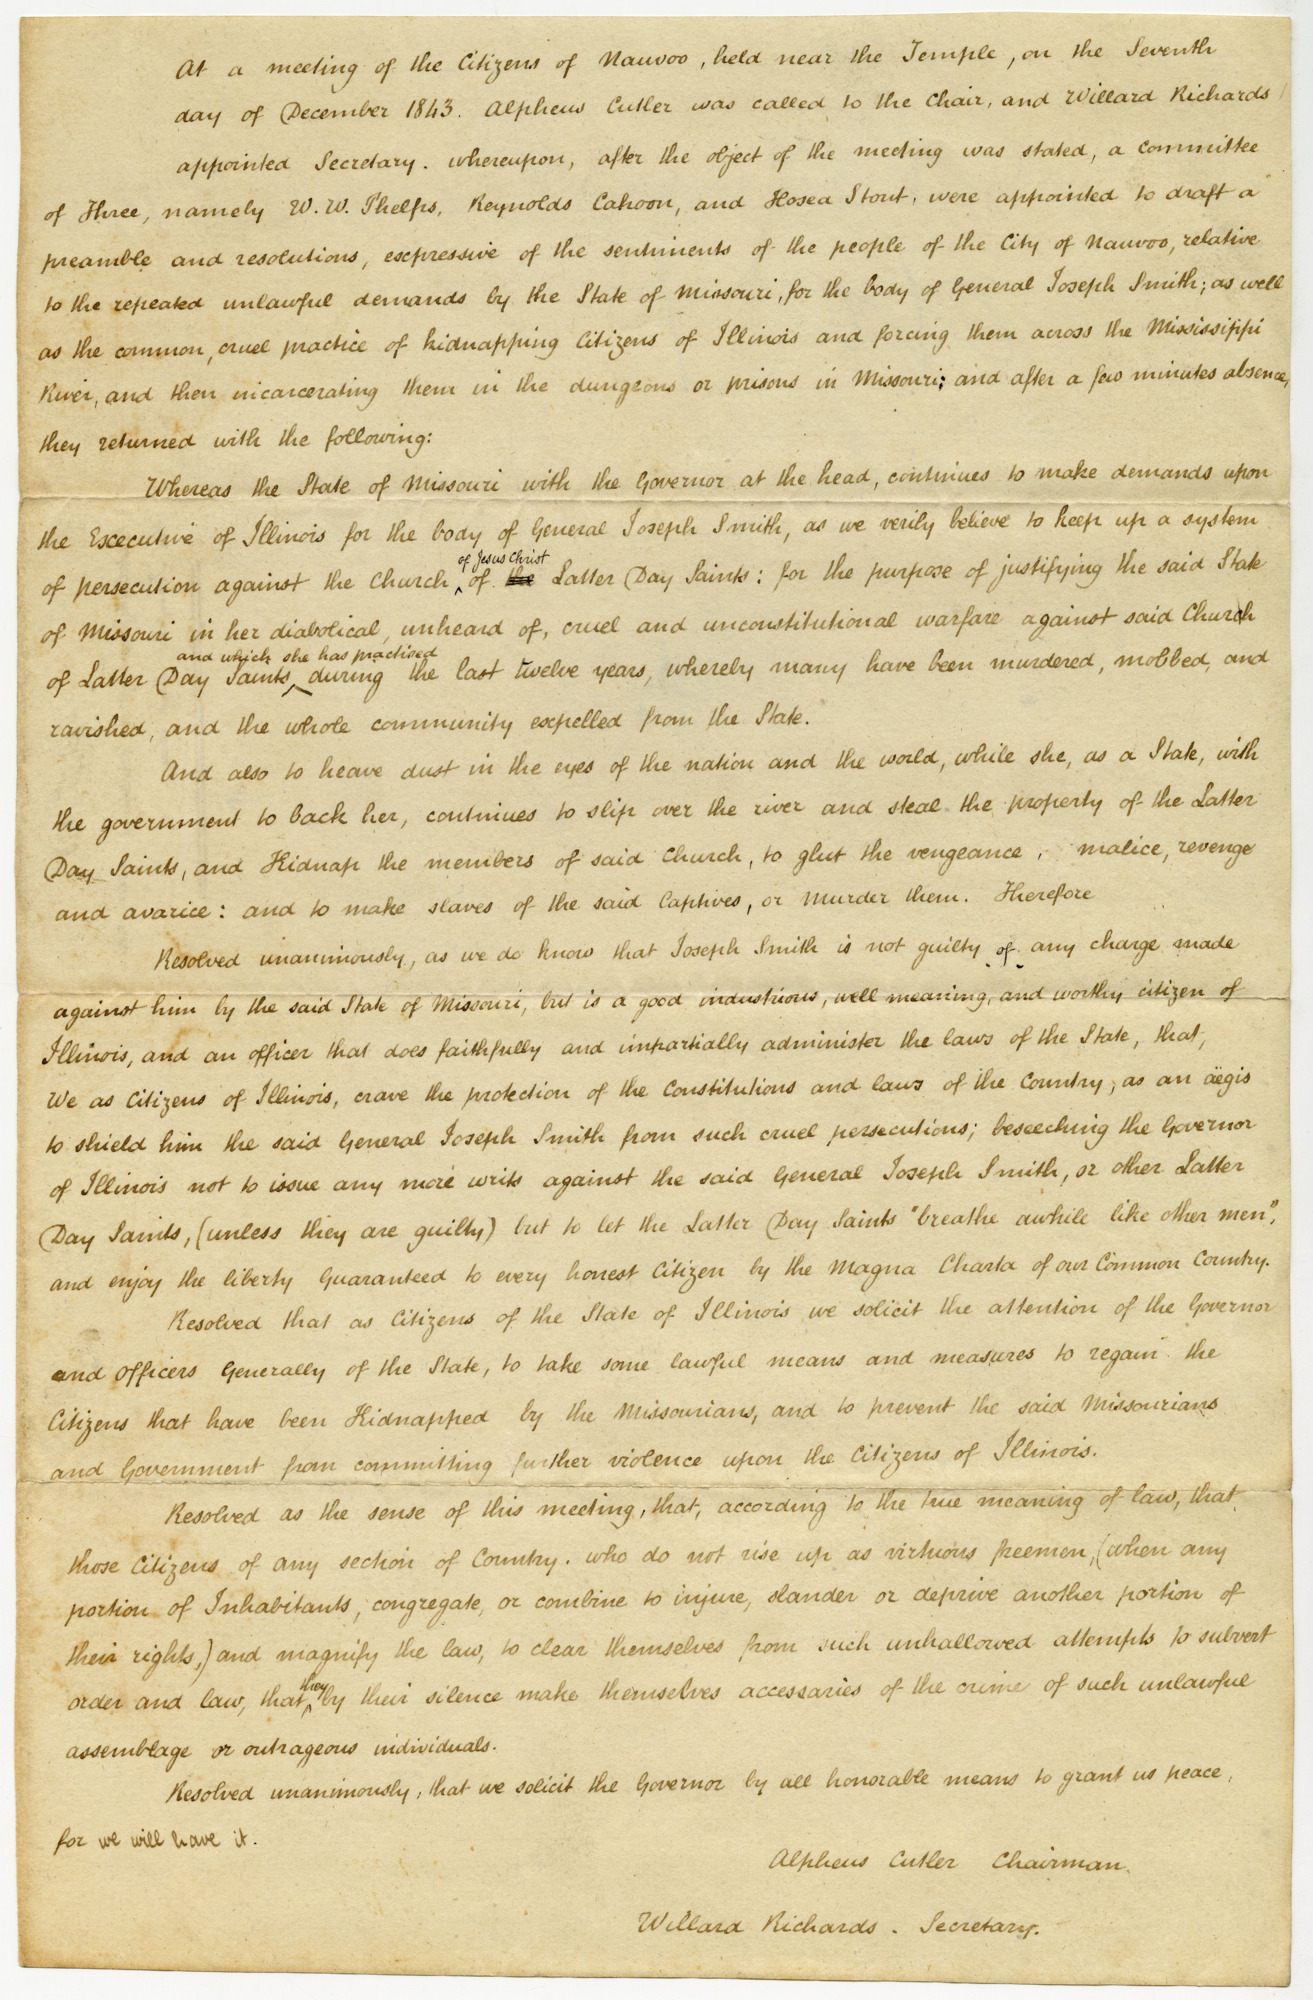 At a meeting of the Citizens of Nauvoo, held near the Temple, on the Seventh
day of December 1843. Alpheus Cutler was called to the Chair, and Willard Richards
appointed Secretary. whereupon, after the object of the meeting was stated, a committee
of Three, namely W. W. Phelps, Reynolds Cahoon, and Hosea Stout, were appointed to draft a
preamble and resolutions, expressive of the sentiments of the people of the City of Nauvoo, relative
to the repeated unlawful demands by the State of Missouri, for the body of General Joseph Smith; as well
as the common, cruel practice of kidnapping Citizens of Illinois and forcing them across the Mississippi
River, and then incarcerating them in the dungeons or prisons in Missouri; and after a few minutes absence,
they returned with the following:
Whereas the State of Missouri with the Governor at the head, continues to make demands upon
the Executive of Illinois for the body of General Joseph Smith, as we verily believe to keep up a system
of Jesus Christ
of persecution against the Church ^ of the Latter Day Saints: for the purpose of justifying the said State
of Missouri in her diabolical, unheard of, cruel and unconstitutional warfare against said Church
and which she has practised
of Latter Day Saints ^ during the last twelve years, whereby many have been murdered, mobbed, and
ravished, and the whole community expelled from the State.
And also to heave dust in the eyes of the nation and the world, while she, as a State, with
the government to back her, continues to slip over the river and steal the property of the Latter
Day Saints, and Kidnap the members of said Church, to glut the vengeance, malice, revenge
and avarice: and to make slaves of the said Captives, or Murder them. Therefore
Resolved unanimously, as we do know that Joseph Smith is not guilty of any charge made
against him by the said State of Missouri, but is a good industrious, well meaning, and worthy citizen of
Illinois, and an officer that does faithfully and impartially administer the laws of the State, that,
We as Citizens of Illinois, crave the protection of the Constitutions and laws of the Country, as an äegis
to shield him the said General Joseph Smith from such cruel persecutions; beseeching the Governor
of Illinois not to issue any more writs against the said General Joseph Smith, or other Latter
Day Saints, (unless they are guilty) but to let the Latter Day Saints "breathe awhile like other men",
and enjoy the liberty Guaranteed to every honest Citizen by the Magna Charta of our Common Country.
Resolved that as Citizens of the State of Illinois we solicit the attention of the Governor
and Officers Generally of the State, to take some lawful means and measures to regain the
Citizens that have been Kidnapped by the Missourians, and to prevent the said Missourians
and Government from committing further violence upon the Citizens of Illinois.
Resolved as the sense of this meeting, that, according to the true meaning of law, that
those Citizens of any section of Country. who do not rise up as virtuous freemen, (when any
portion of Inhabitants, congregate, or combine to injure, slander or deprive another portion of
their rights,) and magnify the law, to clear themselves from such unhallowed attempts to subvert
they
order and law, that ^ by their silence make themselves accessaries of the crime of such unlawful
assemblage or outrageous individuals.
Resolved unanimously, that we solicit the Governor by all honorable means to grant us peace,
for we will have it.
Alpheus Cutler Chairman.
Willard Richards. Secretary.